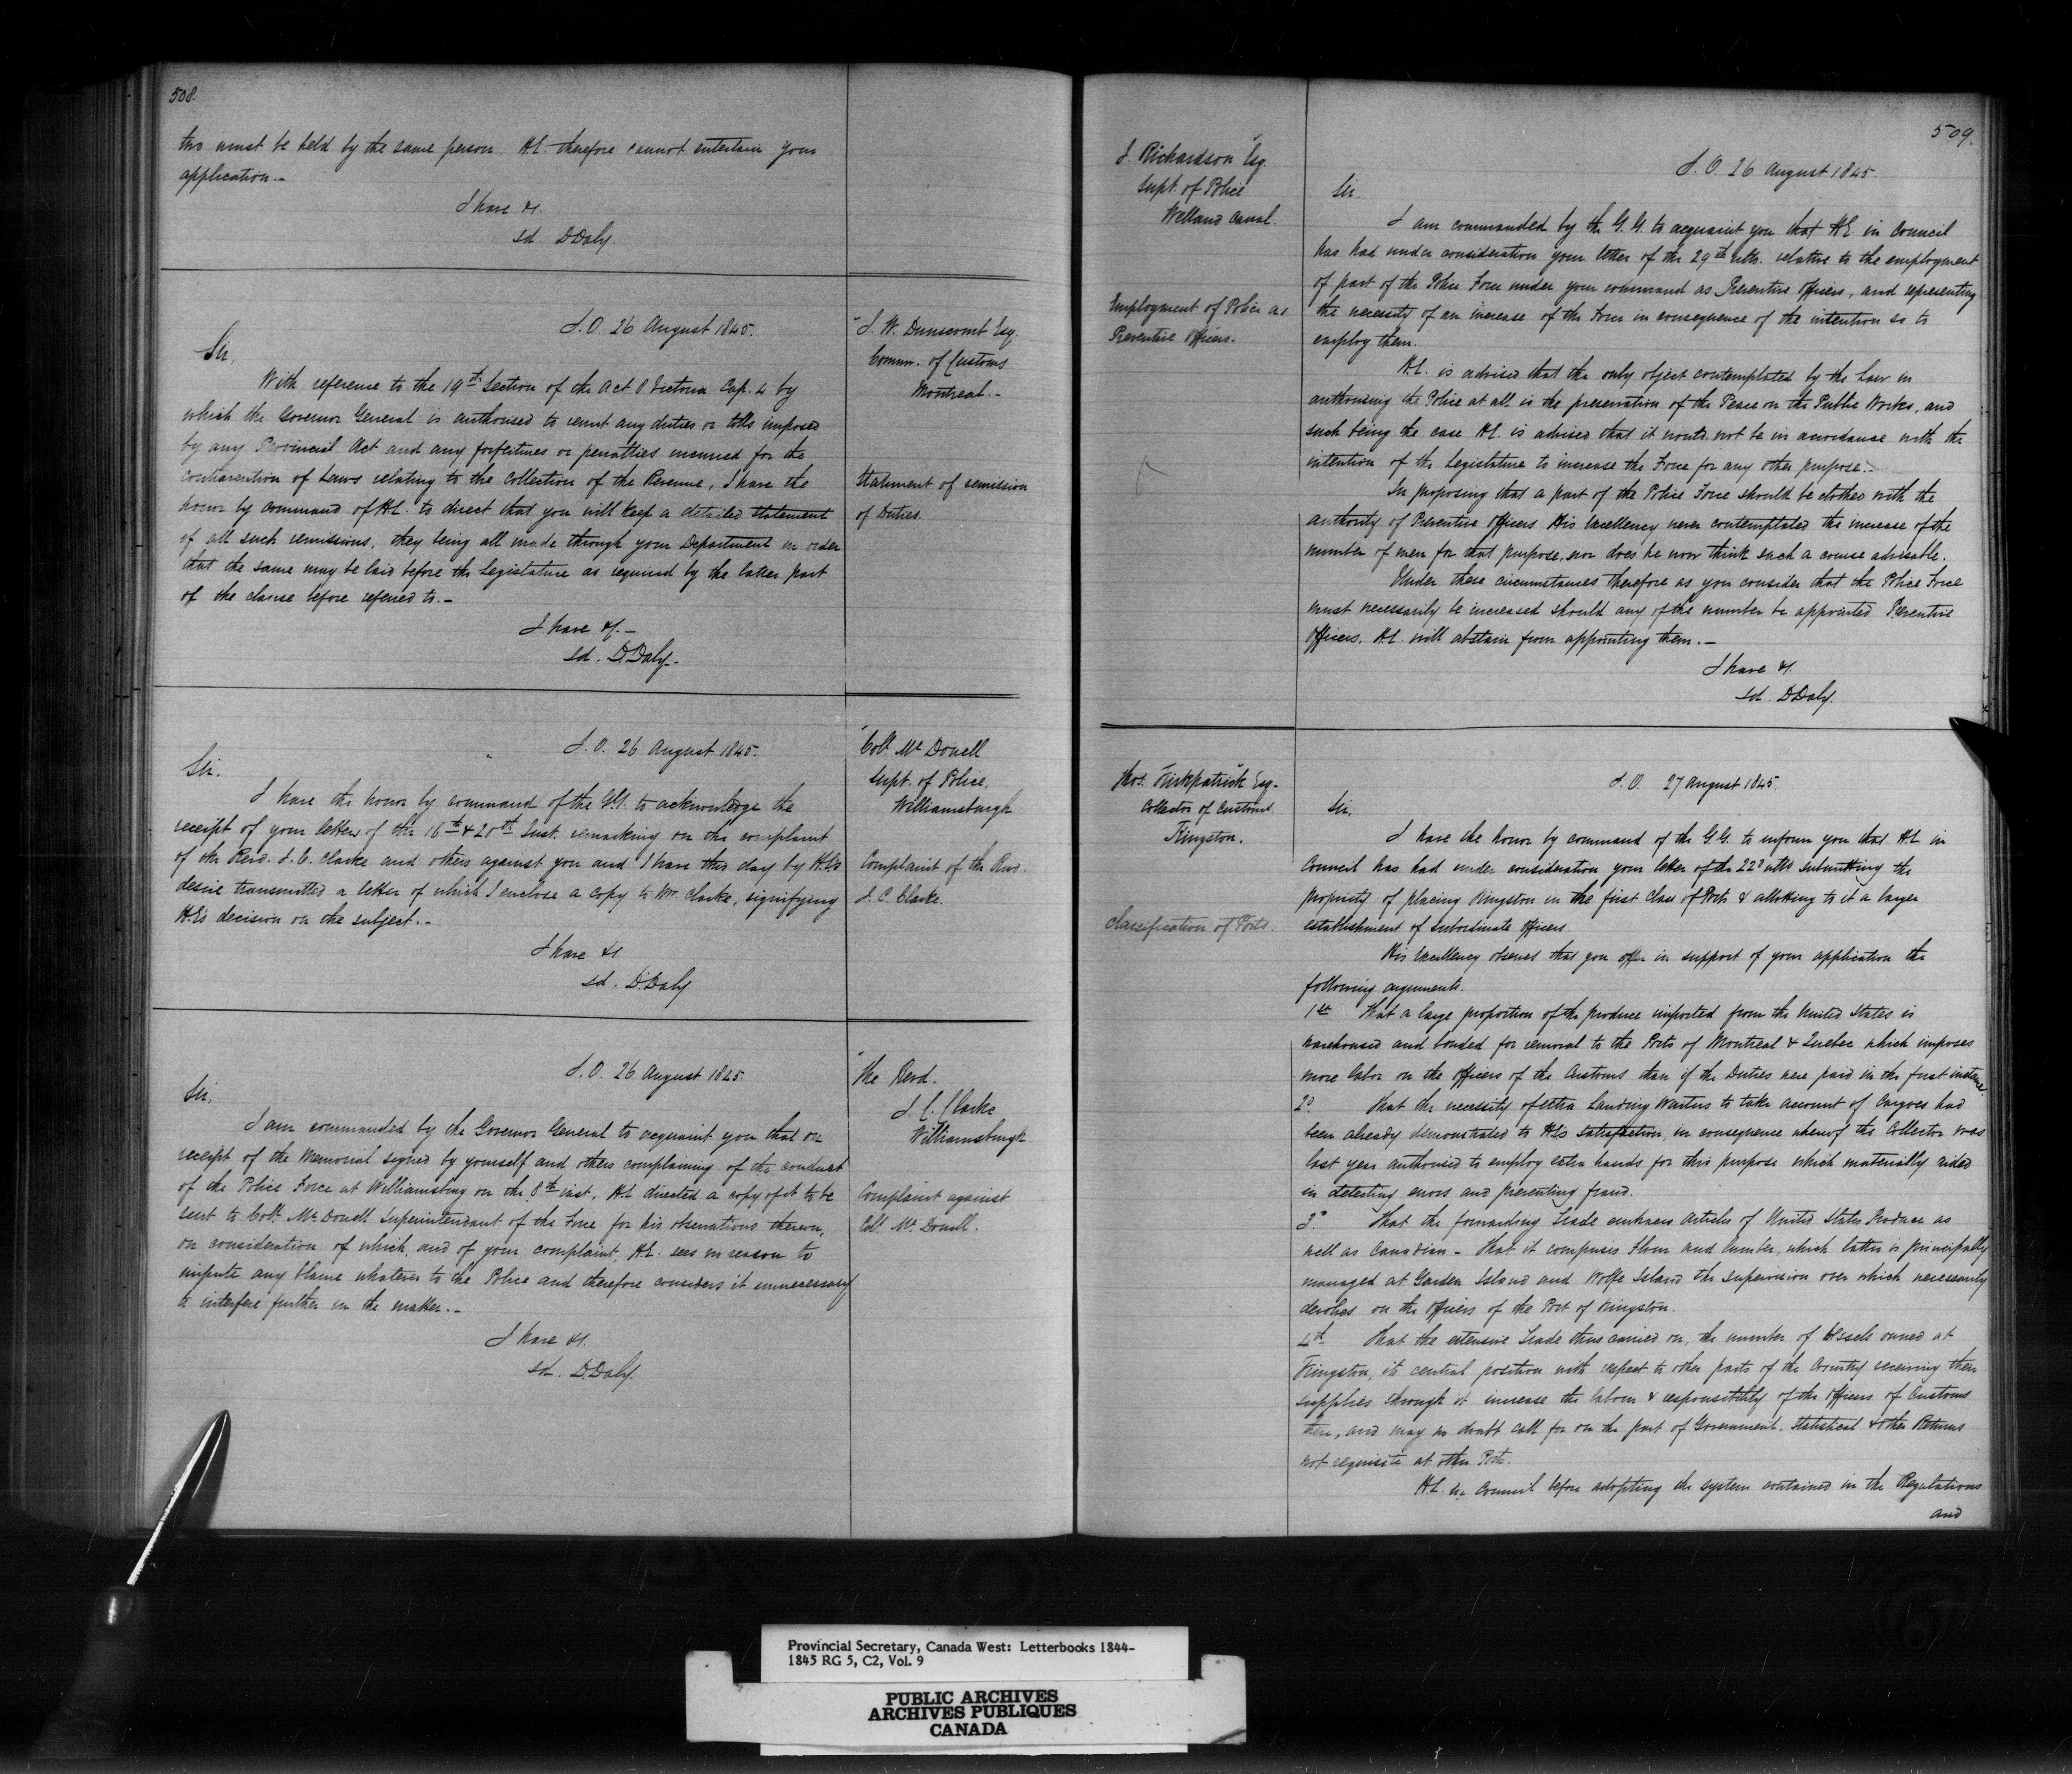 508.
two must be held by the same person. H.E. therefore cannot entertain your
application.-
I have &c.
sd D Daly.
S.O. 26 August 1845.
J. W. Dunscomb Esq
Comm. of Customs
Montreal.-
Statement of remission
of Duties.
Sir,
With reference to the 19th Section of the Act 8 Victoria Cap. 4 by
which the Governor General is authorised to remit any duties or tolls imposed
by any Provincial Act and any forfeitures or penalties incurred for the
contravention of Laws relating to the Collection of the Revenue, I have the
honor by command of H.E. to direct that you will keep a detailed statement
of all such remissions, they being all made through your Department in order
that the same may be laid before the Legislature as required by the latter part
of the clause before referred to.-
I have &c.-
sd. D. Daly.
S.O. 26 August 1845.
Coll. Mc Donell
Supt. of Police,
Williamsburgh
Complaint of the Revd.
J. C. Clarke.
Sir.
I have the honor by command of the G.G. to acknowledge the
receipt of your letters of the 16th & 20th Inst. remarking on the complaint
of the Revd. J. C. Clarke and others against you and I have this day by H.E's
desire transmitted a letter of which I enclose a copy to Mr Clarke, signifying
H.E's decision on the subject.-
I have &c
sd. D. Daly
S.O. 26 August 1845.
The Revd.
J. C. Clarke
Williamsburgh
Complaint against
Coll. Mc Donell.
Sir,
I am commanded by the Governor General to acquaint you that on
receipt of the Memorial signed by yourself and others complaining of the conduct
of the Police Force at Williamsburg on the 8th inst, H.E. directed a copy of it to be
sent to Coll. Mc Donell Superintendant of the Force for his observations thereon,
on consideration of which, and of your complaint, H.E. sees no reason to
impute any blame whatever to the Police and therefore considers it unnecessary
to interfere further in the matter.-
I have &c.
sd. D. Daly.
509.
J. Richardson Esq.
Supt. of Police
Welland Canal.
Employment of Police as
Preventive Officers.
S.O. 26 August 1845.
Sir.
I am commanded by the G.G. to acquaint you that H.E. in Council
has had under consideration your letter of the 29th ulto. relative to the employment
of part of the Police Force under your command as Preventive Officers, and representing
the necessity of an increase of the Force in consequence of the intention so to
employ them.
H.E. is advised that the only object contemplated by the Law in
authorising the Police at all is the preservation of the Peace on the Public Works, and
such being the case H.E. is advised that it would not be in accordance with the
intention of the Legislature to increase the Force for any other purpose.-
In proposing that a part of the Police Force should be clothed with the
authority of Preventive Officers His Excellency never contemplated the increase of the
number of men for that purpose, nor does he now think such a course advisable.
Under these circumstances therefore as you consider that the Police Force
must necessarily be increased should any of the number be appointed Preventive
Officers. H.E. will abstain from appointing them.-
I have &c.
sd. D Daly.
Thos. Kirkpatrick Esq.
Collector of Customs
Kingston.
Classification of Ports.
S.O. 27 August 1845.
Sir,
I have the honor by command of the G.G. to inform you that H.E. in
Council has had under consideration your letter of the 22d ulto submitting the
propriety of placing Kingston in the first Class of Ports & allotting to it a larger
establishment of subordinate Officers.
His Excellency observes that you offer in support of your application the
following arguments.
1st That a large proportion of the produce imported from the United States is
warehoused and bonded for removal to the Ports of Montreal & Quebec which imposes
more labor on the Officers of the Customs than if the Duties were paid in the first instance.
2d. That the necessity of extra Landing Waiters to take account of Cargoes had
been already demonstrated to H.E's satisfaction, in consequence whereof the Collector was
last year authorised to employ extra hands for this purpose which materially aided
in detecting errors and preventing fraud.
3d. That the forwarding Trade embraces Articles of United States Produce as
well as Canadian - that it comprises Flour and Lumber, which latter is principally
managed at Garden Island and Wolfe Island the supervision over which necessarily
devolves on the Officers of the Port of Kingston.
4th. That the extensive Trade thus carried on, the number of Vessels owned at
Kingston, its central position with respect to other parts of the Country receiving their
supplies through it increase the labour & responsibility of the Officers of Customs
there, and may no doubt call for on the part of Government, Statistical & other Returns
not requisite at other Ports.
H.E. in Council before adopting the system contained in the Regulations
and
Provincial Secretary, Canada West: Letterbooks 1844-
1845 RG 5, C2, Vol. 9
PUBLIC ARCHIVES
ARCHIVES PUBLIQUES
CANADA